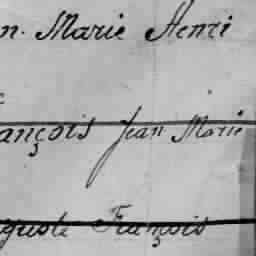 n. Marie Henri
ançois Jean Marie
guste François